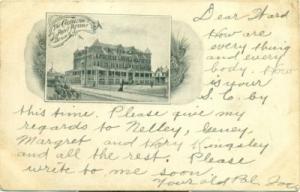 The
Point
Dear Ward
How are
every thing
and every
body. How
is your
S. C. by
this time. Please give my
regards to Nelley,
Margret and Kingsley
and all the rest. Please
write to me soon.
Your old Pal,